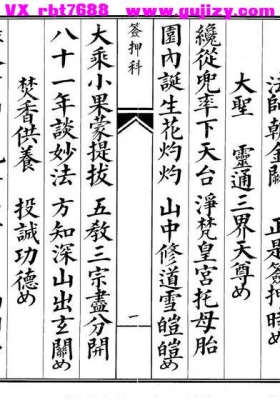 VX rbt7688 www.gujizy.com
法師朝金闕 正是簽押時め
大聖 靈通三界天尊め
纔從兜率下天台 淨梵皇宮托母胎
園內誕生花灼灼 山中修道雪皚皚め
簽押科 一
大乘小果蒙提拔 五教三宗盡分開
八十一年談妙法 方知深山出玄關め
焚香供養 投誠功德め